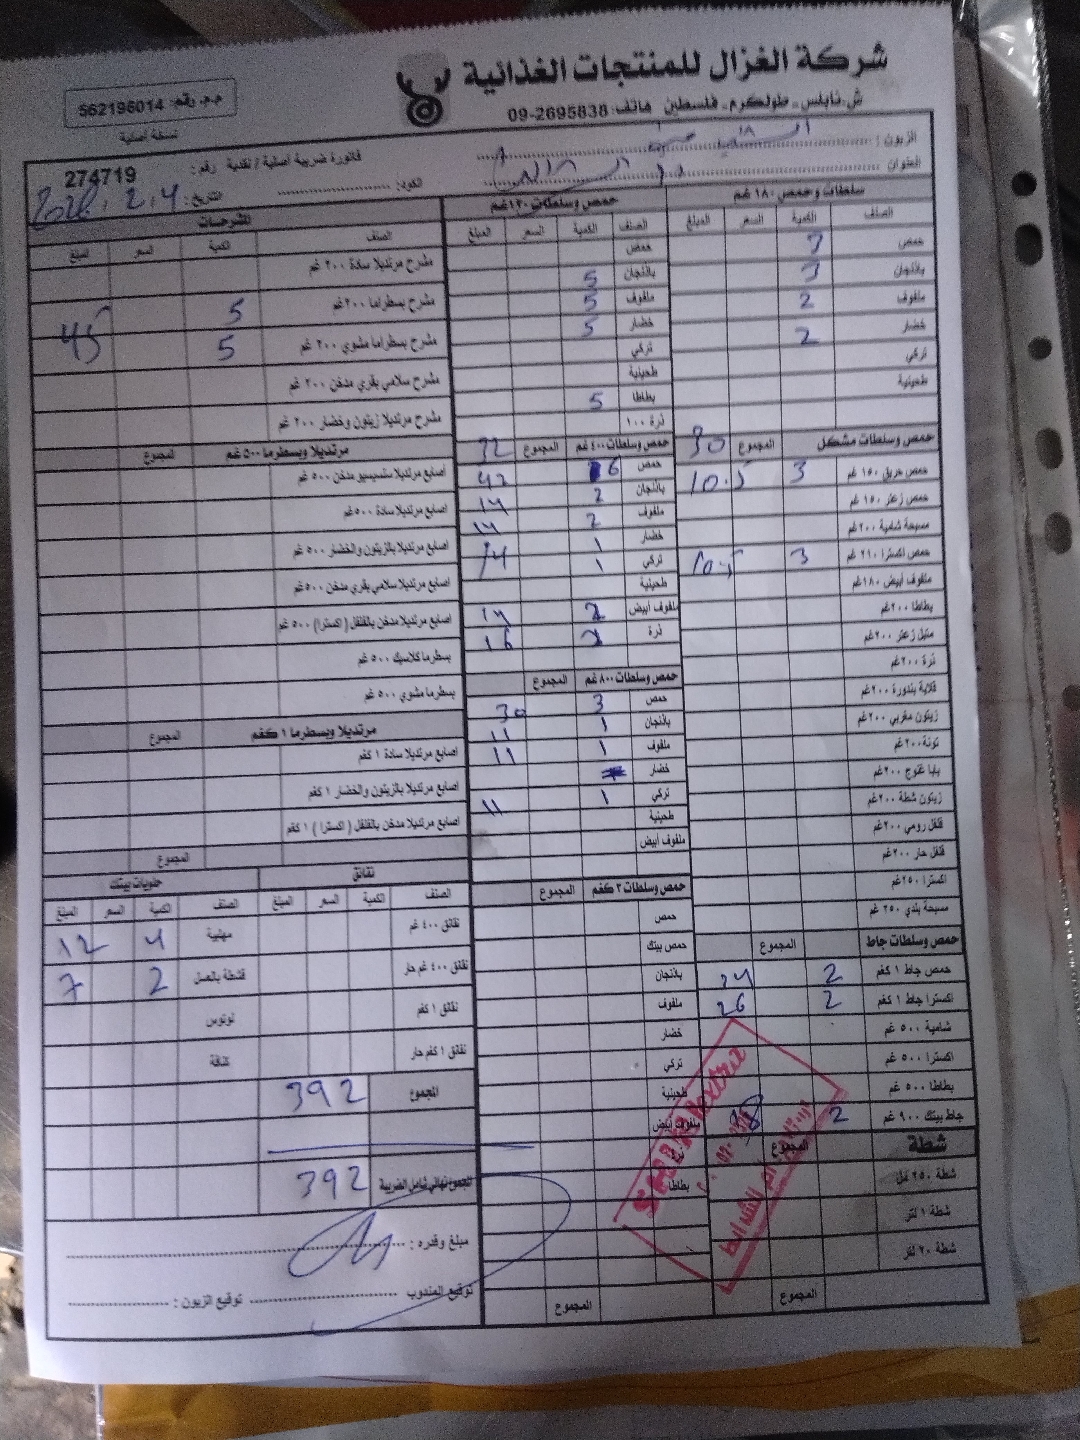 شركة الغزال للمنتجات الغذائية
ش. نابلس - طولكرم - فلسطين هاتف: 09-2695838
م.م. رقم: 562196014
نسخة أصلية
الزبون :
العنوان
فاتورة ضريبية أصلية / نقدية رقم : 274719
الكود:
التاريخ : 4 . 2 .
سلطات وحمص ١٨٠ غم
الصنف الكمية السعر المبلغ
حمص 3
باذنجان 3
ملفوف 2
خضار 2
تركي
طحينية
حمص وسلطات مشكل المجموع 30
حمص حريق ١٥٠ غم 3 10.5
حمص زعتر ١٥٠ غم
مسبحة شامية ٢٠٠غم
حمص اكسترا ٢١٠ غم 3 10.5
ملفوف أبيض ١٨٠غم
بطاطا ٢٠٠غم
متبل زعتر ٢٠٠غم
ذرة ٢٠٠غم
قلاية بندورة ٢٠٠غم
زيتون مغربي ٢٠٠غم
تونة ٢٠٠غم
بابا غنوج ٢٠٠غم
زيتون شطة ٢٠٠غم
فلفل رومي ٢٠٠غم
فلفل حار ٢٠٠غم
اكسترا ٢٥٠غم
مسبحة بلدي ٢٥٠ غم
حمص وسلطات جاط المجموع
حمص جاط ١ كغم 2 24
اكسترا جاط ١ كغم 2 26
شامية ٥٠٠ غم
اكسترا ٥٠٠ غم
بطاطا ٥٠٠ غم
جاط بيتك ٩٠٠ غم 2 18
شطة المجموع
شطة ٢٥٠ مل
شطة ١ لتر
شطة ٢٠ لتر
المجموع
حمص وسلطات ١٢٠غم
الصنف الكمية السعر المبلغ
حمص
باذنجان 5
ملفوف 5
خضار 5
تركي
طحينية
بطاطا 5
ذرة ١٠٠
حمص وسلطات ٤٠٠ غم المجموع 32
حمص 6 42
باذنجان 2 14
ملفوف 2 14
خضار 1
تركي 1 14
طحينية
ملفوف أبيض 2 14
ذرة 2 16
حمص وسلطات ٨٠٠ غم المجموع
حمص 3 30
باذنجان 1 11
ملفوف 1 11
خضار
تركي 1 11
طحينية
ملفوف أبيض
حمص وسلطات ٢ كغم المجموع
حمص
حمص بيتك
باذنجان
ملفوف
خضار
تركي
طحينية
ملفوف أبيض
بطاطا
المجموع
المشرحات
الصنف الكمية السعر المبلغ
مشرح مرتديلا سادة ٢٠٠ غم
مشرح بسطراما ٢٠٠غم 5
مشرح بسطراما مشوي ٢٠٠ غم 5 45
مشرح سلامي بقري مدخن ٢٠٠ غم
مشرح مرتديلا زيتون وخضار ٢٠٠ غم
مرتديلا وبسطرما ٥٠٠ غم المجموع
اصابع مرتديلا ستيسيو مدخن ٥٠٠ غم
اصابع مرتديلا سادة ٥٠٠غم
اصابع مرتديلا بالزيتون والخضار ٥٠٠ غم
اصابع مرتديلا سلامي بقري مدخن ٥٠٠غم
اصابع مرتديلا مدخن بالفلفل ( اكسترا ) ٥٠٠ غم
بسطرما كلاسيك ٥٠٠ غم
بسطرما مشوي ٥٠٠ غم
مرتديلا وبسطرما ١ كغم المجموع
اصابع مرتديلا سادة ١ كغم
اصابع مرتديلا بالزيتون والخضار ١ كغم
اصابع مرتديلا مدخن بالفلفل ( اكسترا ) ١ كغم
المجموع
نقانق
الصنف الكمية السعر المبلغ
نقانق ٤٠٠ غم
نقانق ٤٠٠ غم حار
نقانق ١ كغم
نقانق ١ كغم حار
حلويات بيتك
الصنف الكمية السعر المبلغ
مهلبية 4 12
قشطة بالعسل 2 7
لوتوس
كنافة
المجموع 392
المجموع نهائي شامل الضريبة 392
مبلغ وقدره :
توقيع المندوب
توقيع الزبون :